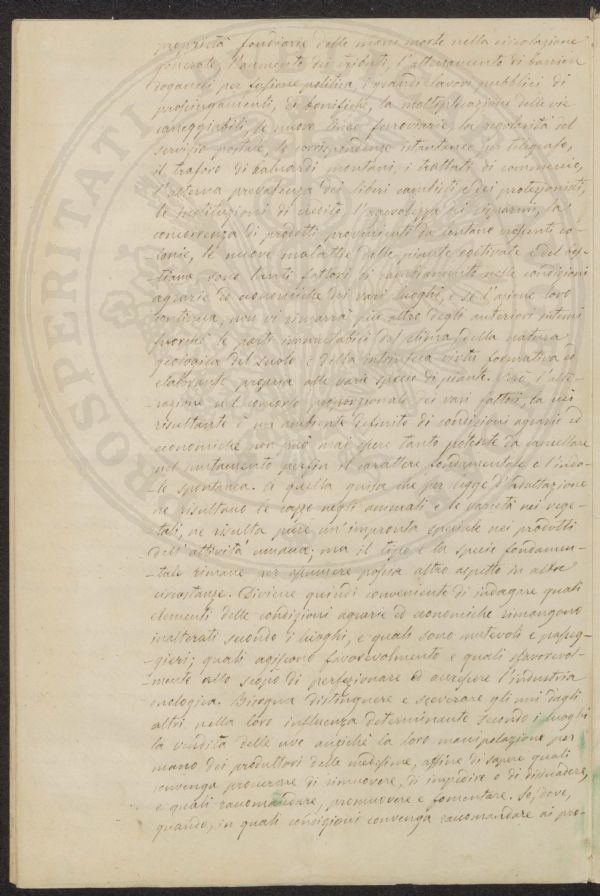 proprietà fondiarie delle mani morte nella circolazione
generale, l'aumento dei tributi, l'atterramento di barriere
doganali per fusione politica, i grandi lavori pubblici di
prosciugamenti, di bonifiche, la moltiplicazione delle vie
carreggiabili, le nuove linee ferroviarie, la regolarità del
servizio postale, le corrispondenze istantanee per telegrafo,
il traforo di baluardi montani, i trattati di commercio,
l'alterna prevalenza dei liberi cambisti e dei protezionisti,
le instituzioni di credito, l'agevolezza ai risparmi, la
concorrenza di prodotti provenienti da lontane co-
-lonie, le nuove malattie delle piante coltivate e del bes-
-tiame sono tanti fattori di mutamento nelle condizioni
agrarie ed economiche dei vari luoghi, e se l'azione loro
continua, non vi rimarrà più altro degli anteriori
fuorché le parti immutabili del clima, della natura
geologica del suolo e della intrinseca virtù formativa ed
elaborante propria alle varie specie di piante. Però, l'alte-
-razione nel concorso proporzionale dei vari fattori, la cui
risultante è un ambiente definito di condizioni agrarie ed
economiche non può mai essere tanto potente da cancellare
nel mutamento persin il carattere fondamentale e l'indo-
-le spontanea. A quella guisa che per legge d'adattazione
ne risultano le razze negli animali e le varietà nei vege-
-tali, ne risulta pure un'impronta speciale nei prodotti
dell'attività umana; ma il tipo e la specie fondamen-
-tale rimane per assumere poscia altro aspetto in altre
circostanze. Diviene quindi conveniente di indagare quali
elementi delle condizioni agrarie ed economiche rimangono
inalterati secondo i luoghi, e quali sono mutevoli e passeg-
-gieri; quali agiscono favorevolmente e quali sfavorevol-
-mente allo scopo di perfezionare ed accrescere l'industria
enologica. Bisogna distinguere e sceverare gli uni dagli
altri nella loro influenza determinante secondo i luoghi
la vendita delle uve anziché la loro manipolazione per
mano dei produttori delle medesime, affine di sapere quali
convenga procurare di rimuovere, di impedire o di dissuadere,
e quali raccomandare, promuovere e fomentare. Se, dove,
quando, in quali condizioni convenga raccomandare ai pro-
PROSPERITATI